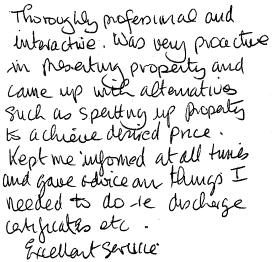 Thoroughly professional and
interactive. Was very proactive
in presenting property and
came up with alternatives
such as splitting up property
to achieve desired price.
Kept me informed at all times
and gave advice on things I
needed to do ie discharge
certificates etc.
Excellent service